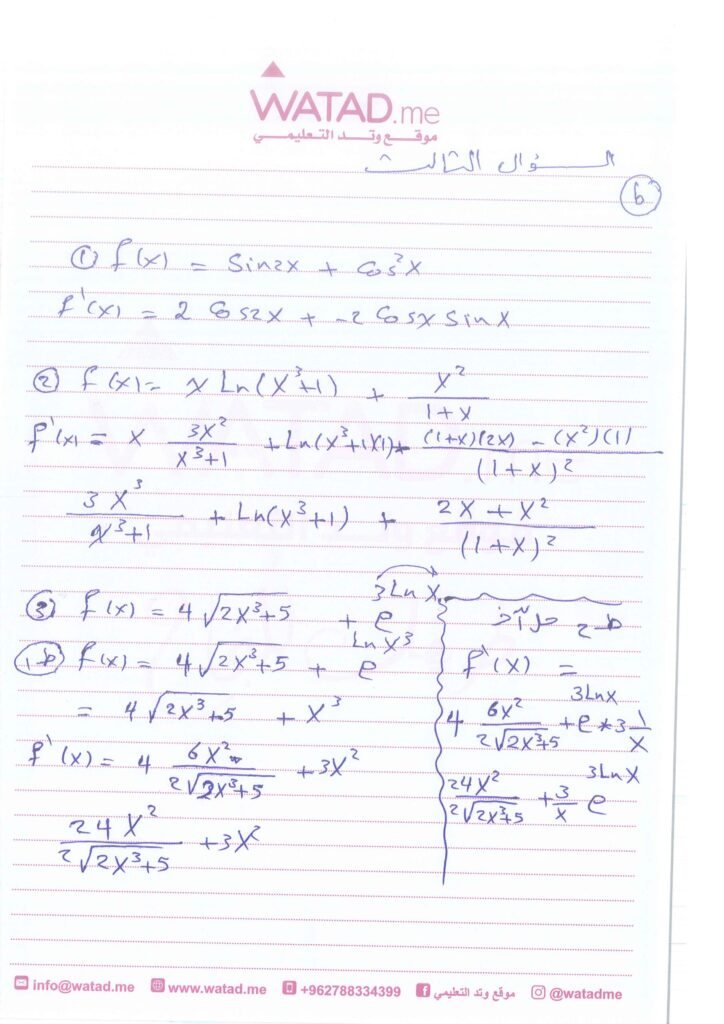 WATAD.me
موقع وتد التعليمي
السؤال الثالث
6
① f(x) = Sin2x + Cos²x
f'(x) = 2 Cos2x + -2 Cosx Sinx
② f(x) = x Ln(x³+1) + x²/(1+x)
f'(x) = x 3x²/(x³+1) + Ln(x³+1)(1) + ((1+x)(2x) - (x²)(1))/(1+x)²
3x³/(x³+1) + Ln(x³+1) + (2x+x²)/(1+x)²
③ f(x) = 4√(2x³+5) + e^(3Ln x)
ط1 f(x) = 4√(2x³+5) + e^(Ln x³)
= 4√(2x³+5) + x³
f'(x) = 4 6x²/(2√(2x³+5)) + 3x²
24x²/(2√(2x³+5)) + 3x²
ط2 حل آخر
f'(x) =
4 6x²/(2√(2x³+5)) + e^(3Lnx) * 3 1/x
24x²/(2√(2x³+5)) + 3/x e^(3Lnx)
info@watad.me www.watad.me +962788334399 موقع وتد التعليمي @watadme